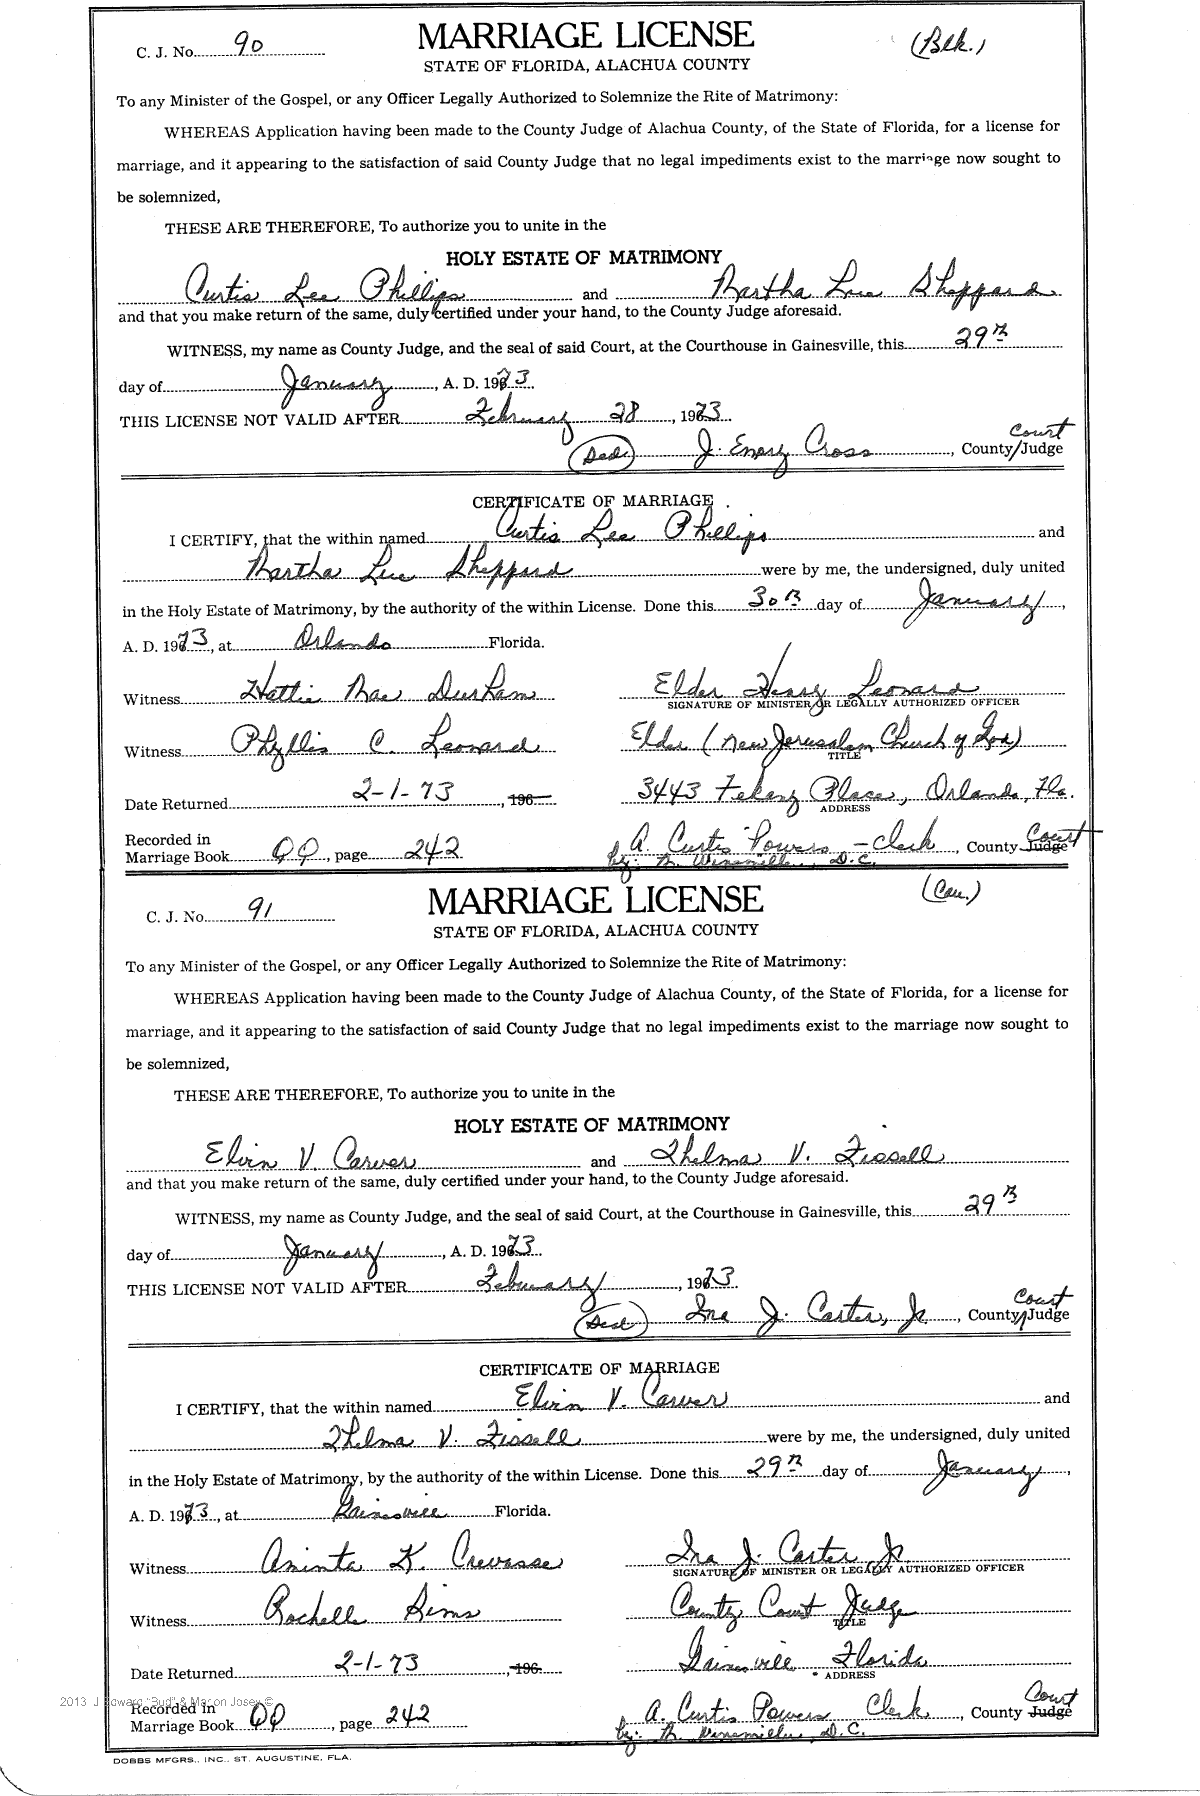 C. J. No. 90 MARRIAGE LICENSE (Blk.)
STATE OF FLORIDA, ALACHUA COUNTY
To any Minister of the Gospel, or any Officer Legally Authorized to Solemnize the Rite of Matrimony:
WHEREAS Application having been made to the County Judge of Alachua County, of the State of Florida, for a license for
marriage, and it appearing to the satisfaction of said County Judge that no legal impediments exist to the marriage now sought to
be solemnized,
THESE ARE THEREFORE, To authorize you to unite in the
HOLY ESTATE OF MATRIMONY
Curtis Lee Phillips and Martha Lue Sheppard
and that you make return of the same, duly certified under your hand, to the County Judge aforesaid.
WITNESS, my name as County Judge, and the seal of said Court, at the Courthouse in Gainesville, this 29th
day of January, A. D. 1973.
THIS LICENSE NOT VALID AFTER February 28, 1973
(Seal) J. Emory Cross, County/Court Judge
CERTIFICATE OF MARRIAGE
I CERTIFY, that the within named Curtis Lee Phillips and
Martha Lue Sheppard were by me, the undersigned, duly united
in the Holy Estate of Matrimony, by the authority of the within License. Done this 30th day of January,
A. D. 1973, at Orlando Florida.
Witness Hattie Mae Durham Elder Henry Leonard
SIGNATURE OF MINISTER OR LEGALLY AUTHORIZED OFFICER
Witness Phyllis C. Leonard Elder (New Jerusalem Church of God)
TITLE
Date Returned 2-1-73, 196 3443 Place, Orlando, Fla.
ADDRESS
Recorded in
Marriage Book QQ, page 242 A. Curtis Powers - Clerk, County Court Judge
by: M. D.C.
C. J. No. 91 MARRIAGE LICENSE (Cau.)
STATE OF FLORIDA, ALACHUA COUNTY
To any Minister of the Gospel, or any Officer Legally Authorized to Solemnize the Rite of Matrimony:
WHEREAS Application having been made to the County Judge of Alachua County, of the State of Florida, for a license for
marriage, and it appearing to the satisfaction of said County Judge that no legal impediments exist to the marriage now sought to
be solemnized,
THESE ARE THEREFORE, To authorize you to unite in the
HOLY ESTATE OF MATRIMONY
Elvin V. Carver and Thelma V. Fissell
and that you make return of the same, duly certified under your hand, to the County Judge aforesaid.
WITNESS, my name as County Judge, and the seal of said Court, at the Courthouse in Gainesville, this 29th
day of January, A. D. 1973.
THIS LICENSE NOT VALID AFTER February, 1973
(Seal) Ira J. Carter, Jr., County Court Judge
CERTIFICATE OF MARRIAGE
I CERTIFY, that the within named Elvin V. Carver and
Thelma V. Fissell were by me, the undersigned, duly united
in the Holy Estate of Matrimony, by the authority of the within License. Done this 29th day of January,
A. D. 1973, at Gainesville Florida.
Witness Aninta K. Crevasse Ira J. Carter Jr.
SIGNATURE OF MINISTER OR LEGALLY AUTHORIZED OFFICER
Witness Rochelle Sims County Court Judge
TITLE
Date Returned 2-1-73, 196 Gainesville Florida
ADDRESS
2013 J Edward "Bud" & Marion Josey ©
Recorded in
Marriage Book QQ, page 242 A. Curtis Powers Clerk, County Court Judge
by: M. D.C.
DOBBS MFGRS., INC., ST. AUGUSTINE, FLA.